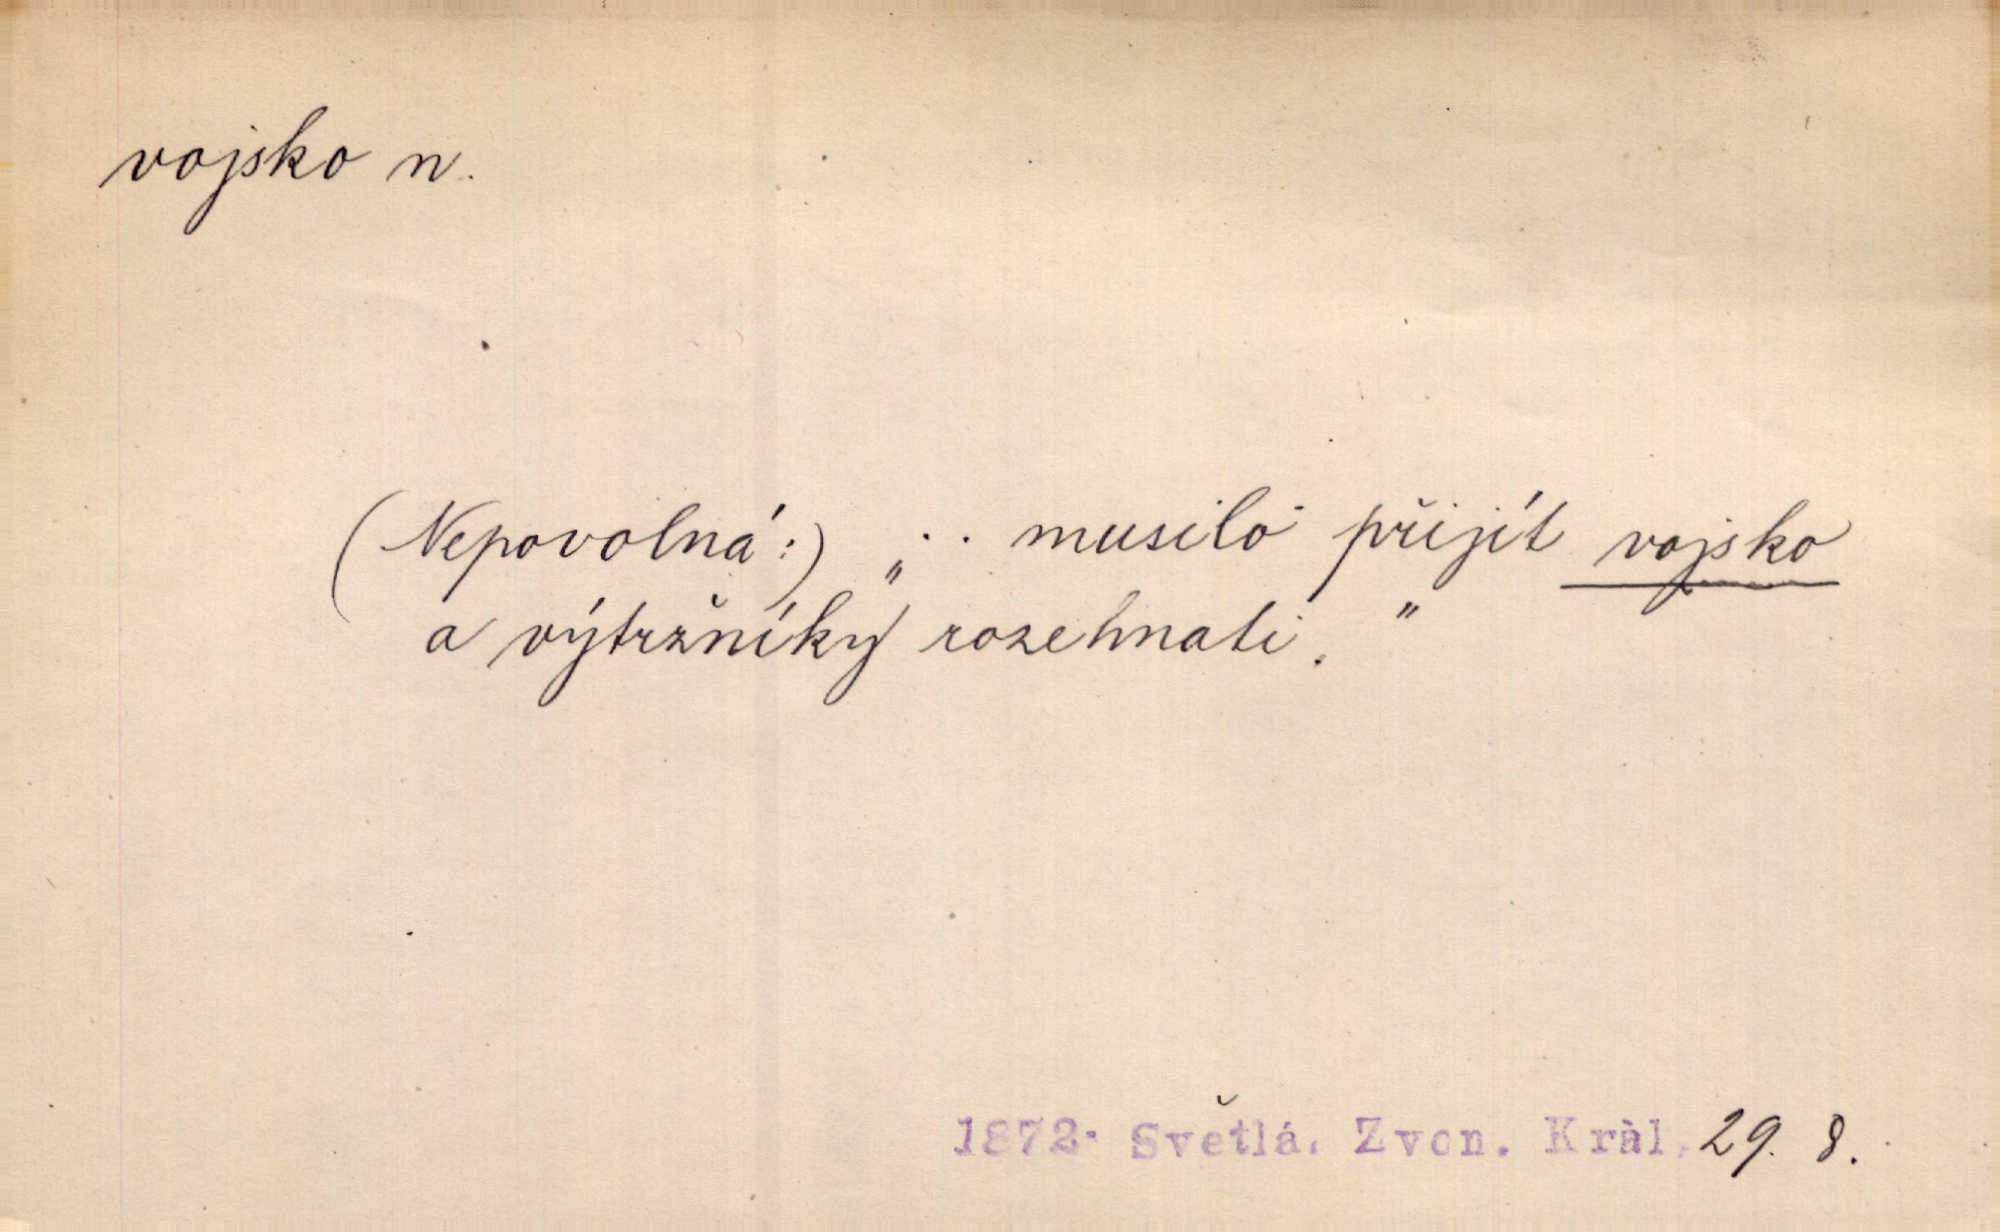 vojsko n.
(Nepovolná:) „.. musilo přijít vojsko
a výtržníky rozehnati."
1872. Světlá. Zvon. Král. 29. 8.